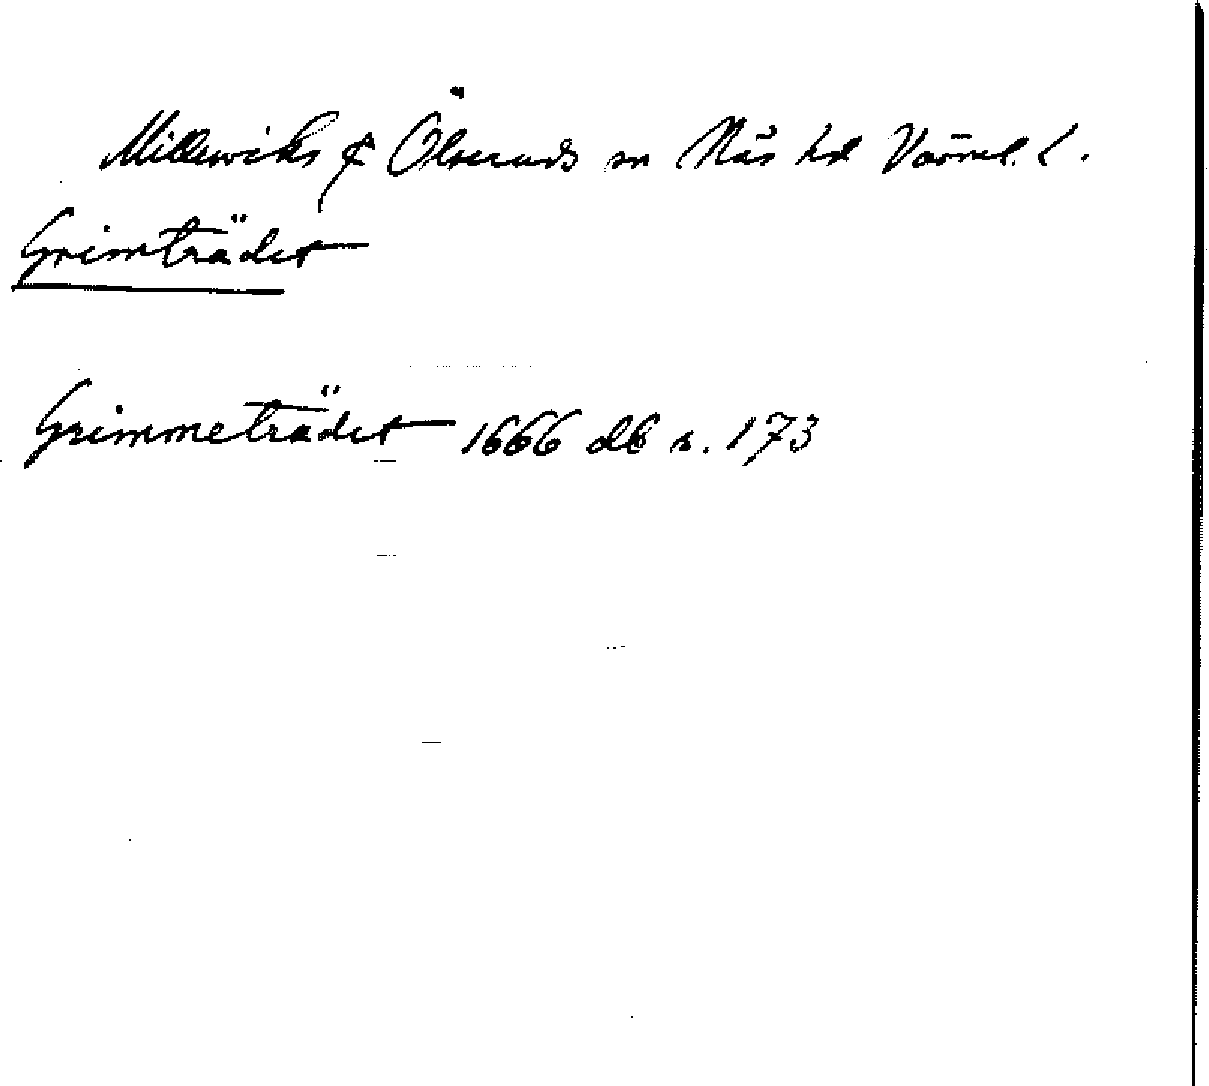 Millerviks fj Ölseruds sn Näs hd Värml. l.
Grimträdet
Grimmeträdet 1666 db s. 173